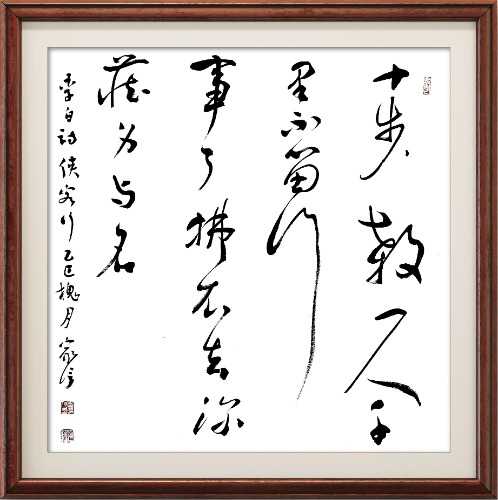 十步殺一人千
里不留行
事了拂衣去深
藏身与名
李白诗俠客行乙巳槐月